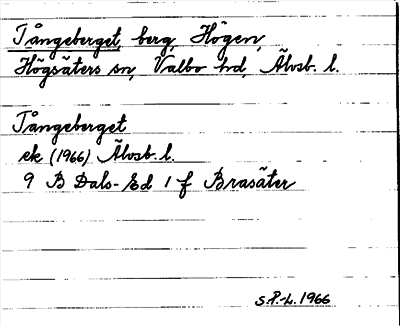 Tångeberget, berg, Högen,
Högsäters sn, Valbo hd, Älvsb. l.
Tångeberget
ek (1966) Älvsb. l.
9 B Dals-Ed 1 f Brasäter
S.P.-L. 1966